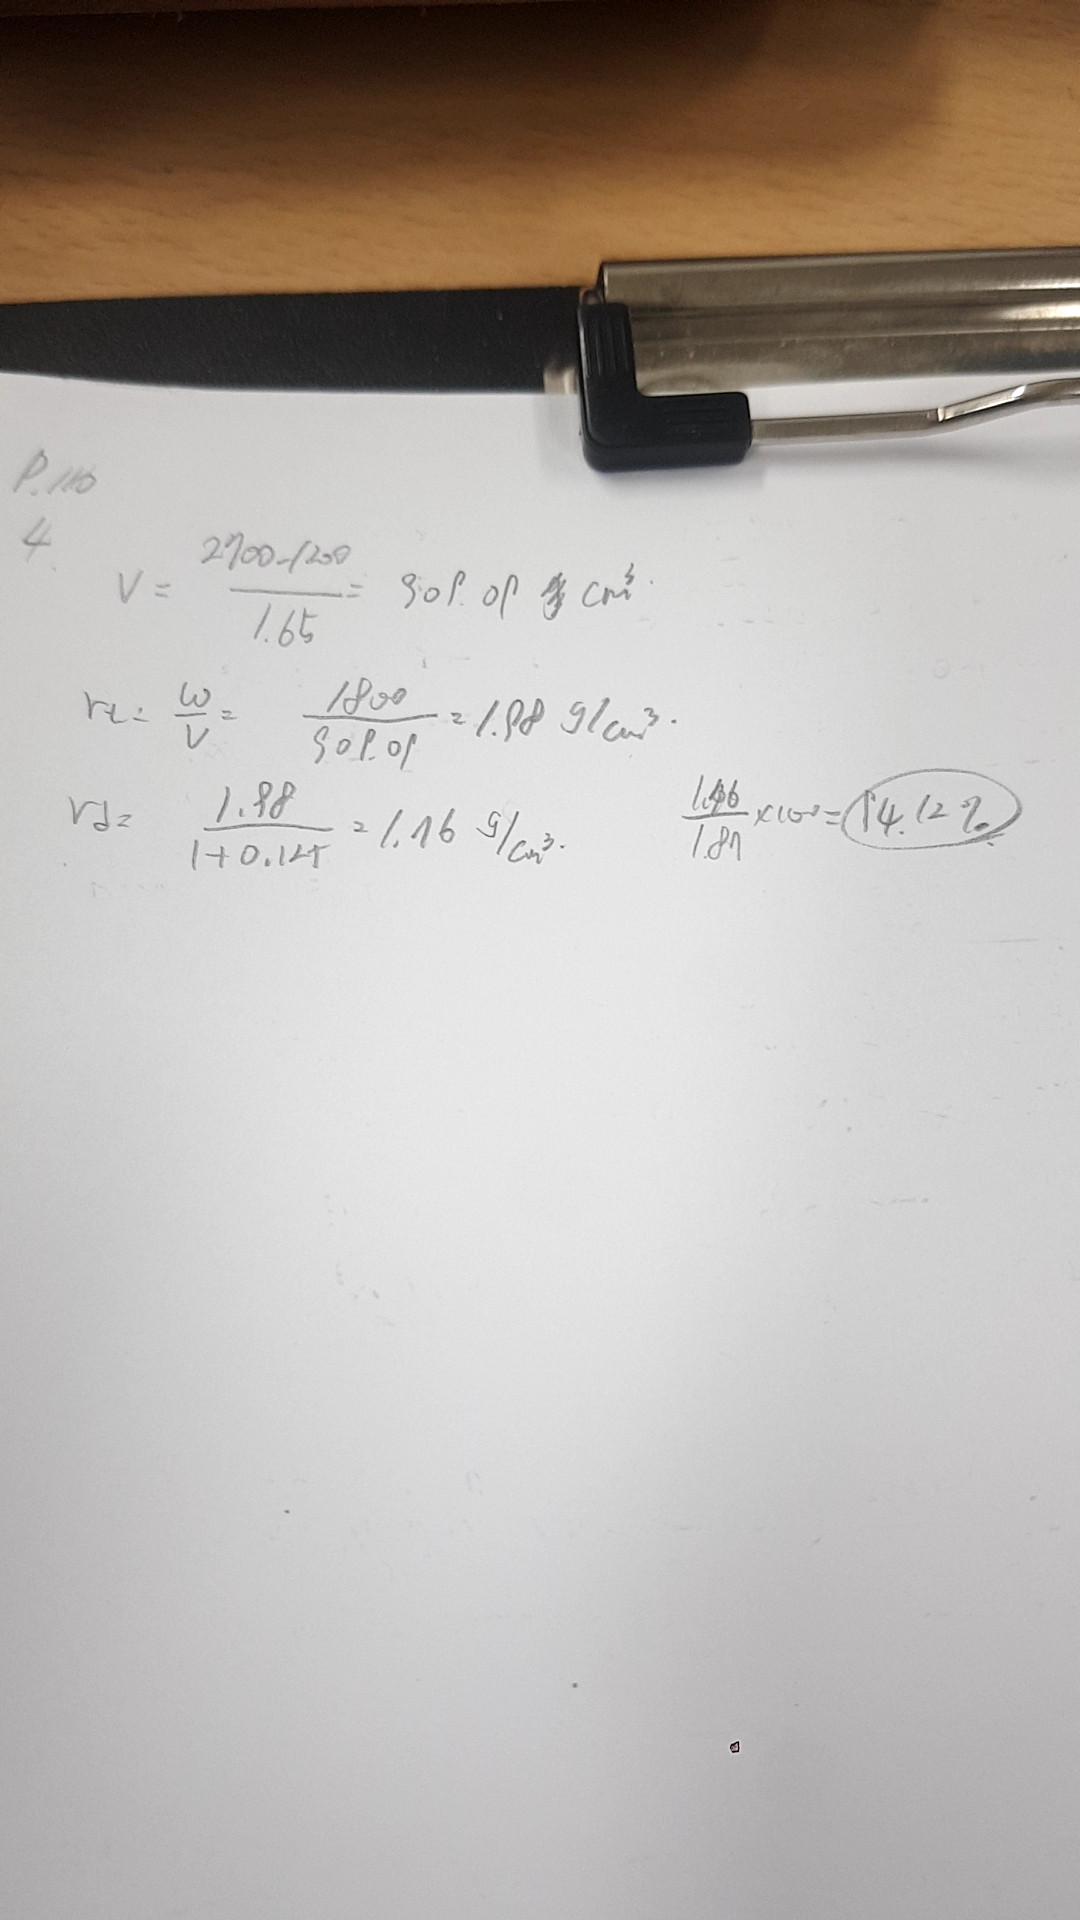 P.110
4.
V = 2700-1200 / 1.65 = 909.09 cm³.
rt = W / V = 1800 / 909.09 = 1.98 g/cm³.
rd = 1.98 / 1+0.125 = 1.76 g/cm³.
1.76 / 1.87 ×100 = 94.12%